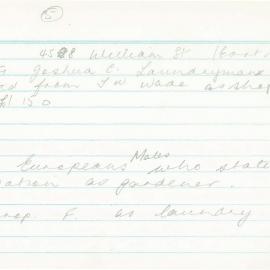 5
William St (East
Joshua C. Laundrymans
from T W Wade as shop
15 0
Males
Europeans who state
as gardener.
F. as laundry